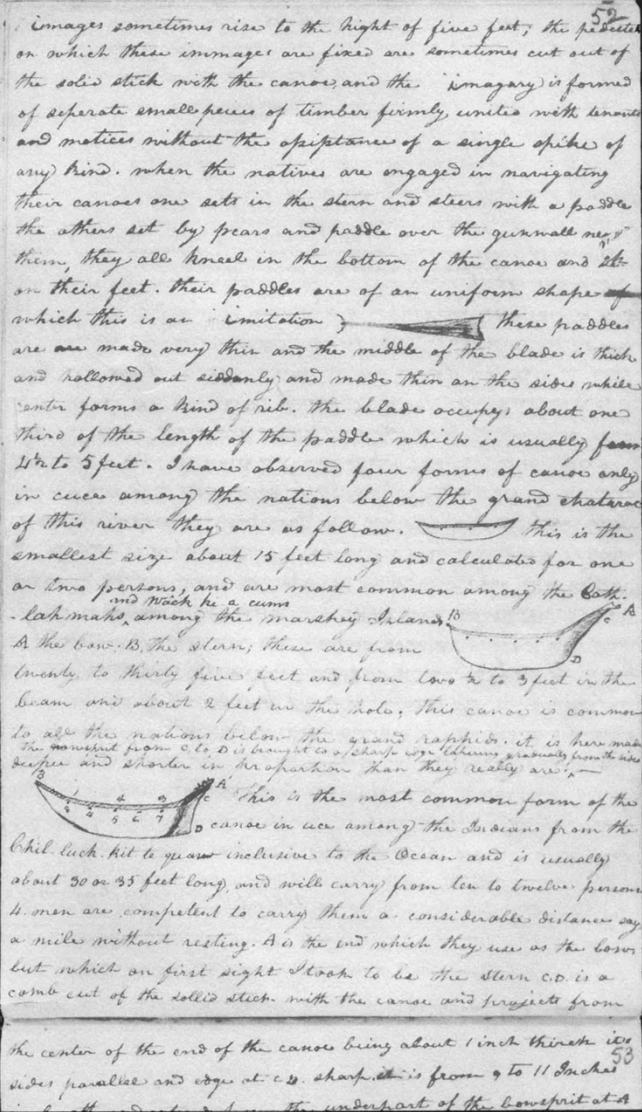 52
images sometimes rise to the hight of five feet; the pedestal
on which these immages are fixed are sometimes cut out of
the solid stick with the canoe, and the imagary is formed
of seperate small peices of timber firmly united with tenants
and motices without the assistance of a single spike of
any kind. when the natives are engaged in navigating
their canoes one sets in the stern and steers with a paddle
the others set by pears and paddle over the gunwall next
them, they all kneel in the bottom of the canoe and set
on their feet. their paddles are of an uniform shape of
which this is an imitation these paddles
are made very thin and the middle of the blade is thick
and hollowed out siddonly and made thin on the sides while
center forms a kind of rib. the blade occupys about one
third of the length of the paddle which is usually from
4½ to 5 feet. I have observed four forms of canoe only
in uce among the nations below the grand chatarac
of this river they are as follow. this is the
smallest size about 15 feet long and calculated for one
or two persons, and are most common among the Cath-
and Wack ki a cums
-lah mahs, among the marshey Islands. B A C
A the bow. B, the stern; these are from D
twenty to thirty five feet and from two ½ to 3 feet in the
beam and about 2 feet in the hole; this canoe is common
to all the nations below the grand raphids. it is here made
the bowsprit from C. to D is brought to a sharp edge tapering gradually from the sides
deeper and shorter in proportion than they really are.
B A C D This is the most common form of the
canoe in uce among the Indians from the
Chil-luck-kit-te quaw inclusive to the Ocean and is usually
about 30 or 35 feet long, and will carry from ten to twelve persons
4. men are competent to carry them a considerable distance say
a mile without resting. A is the end which they use as the bow,
but which on first sight I took to be the stern C.D. is a
comb cut of the sollid stick with the canoe and projects from
53
the center of the end of the canoe being about 1 inch thick it's
sides parallel and edge at C D. sharp. it is from 9 to 11 Inches
the underpart of the bowsprit at A